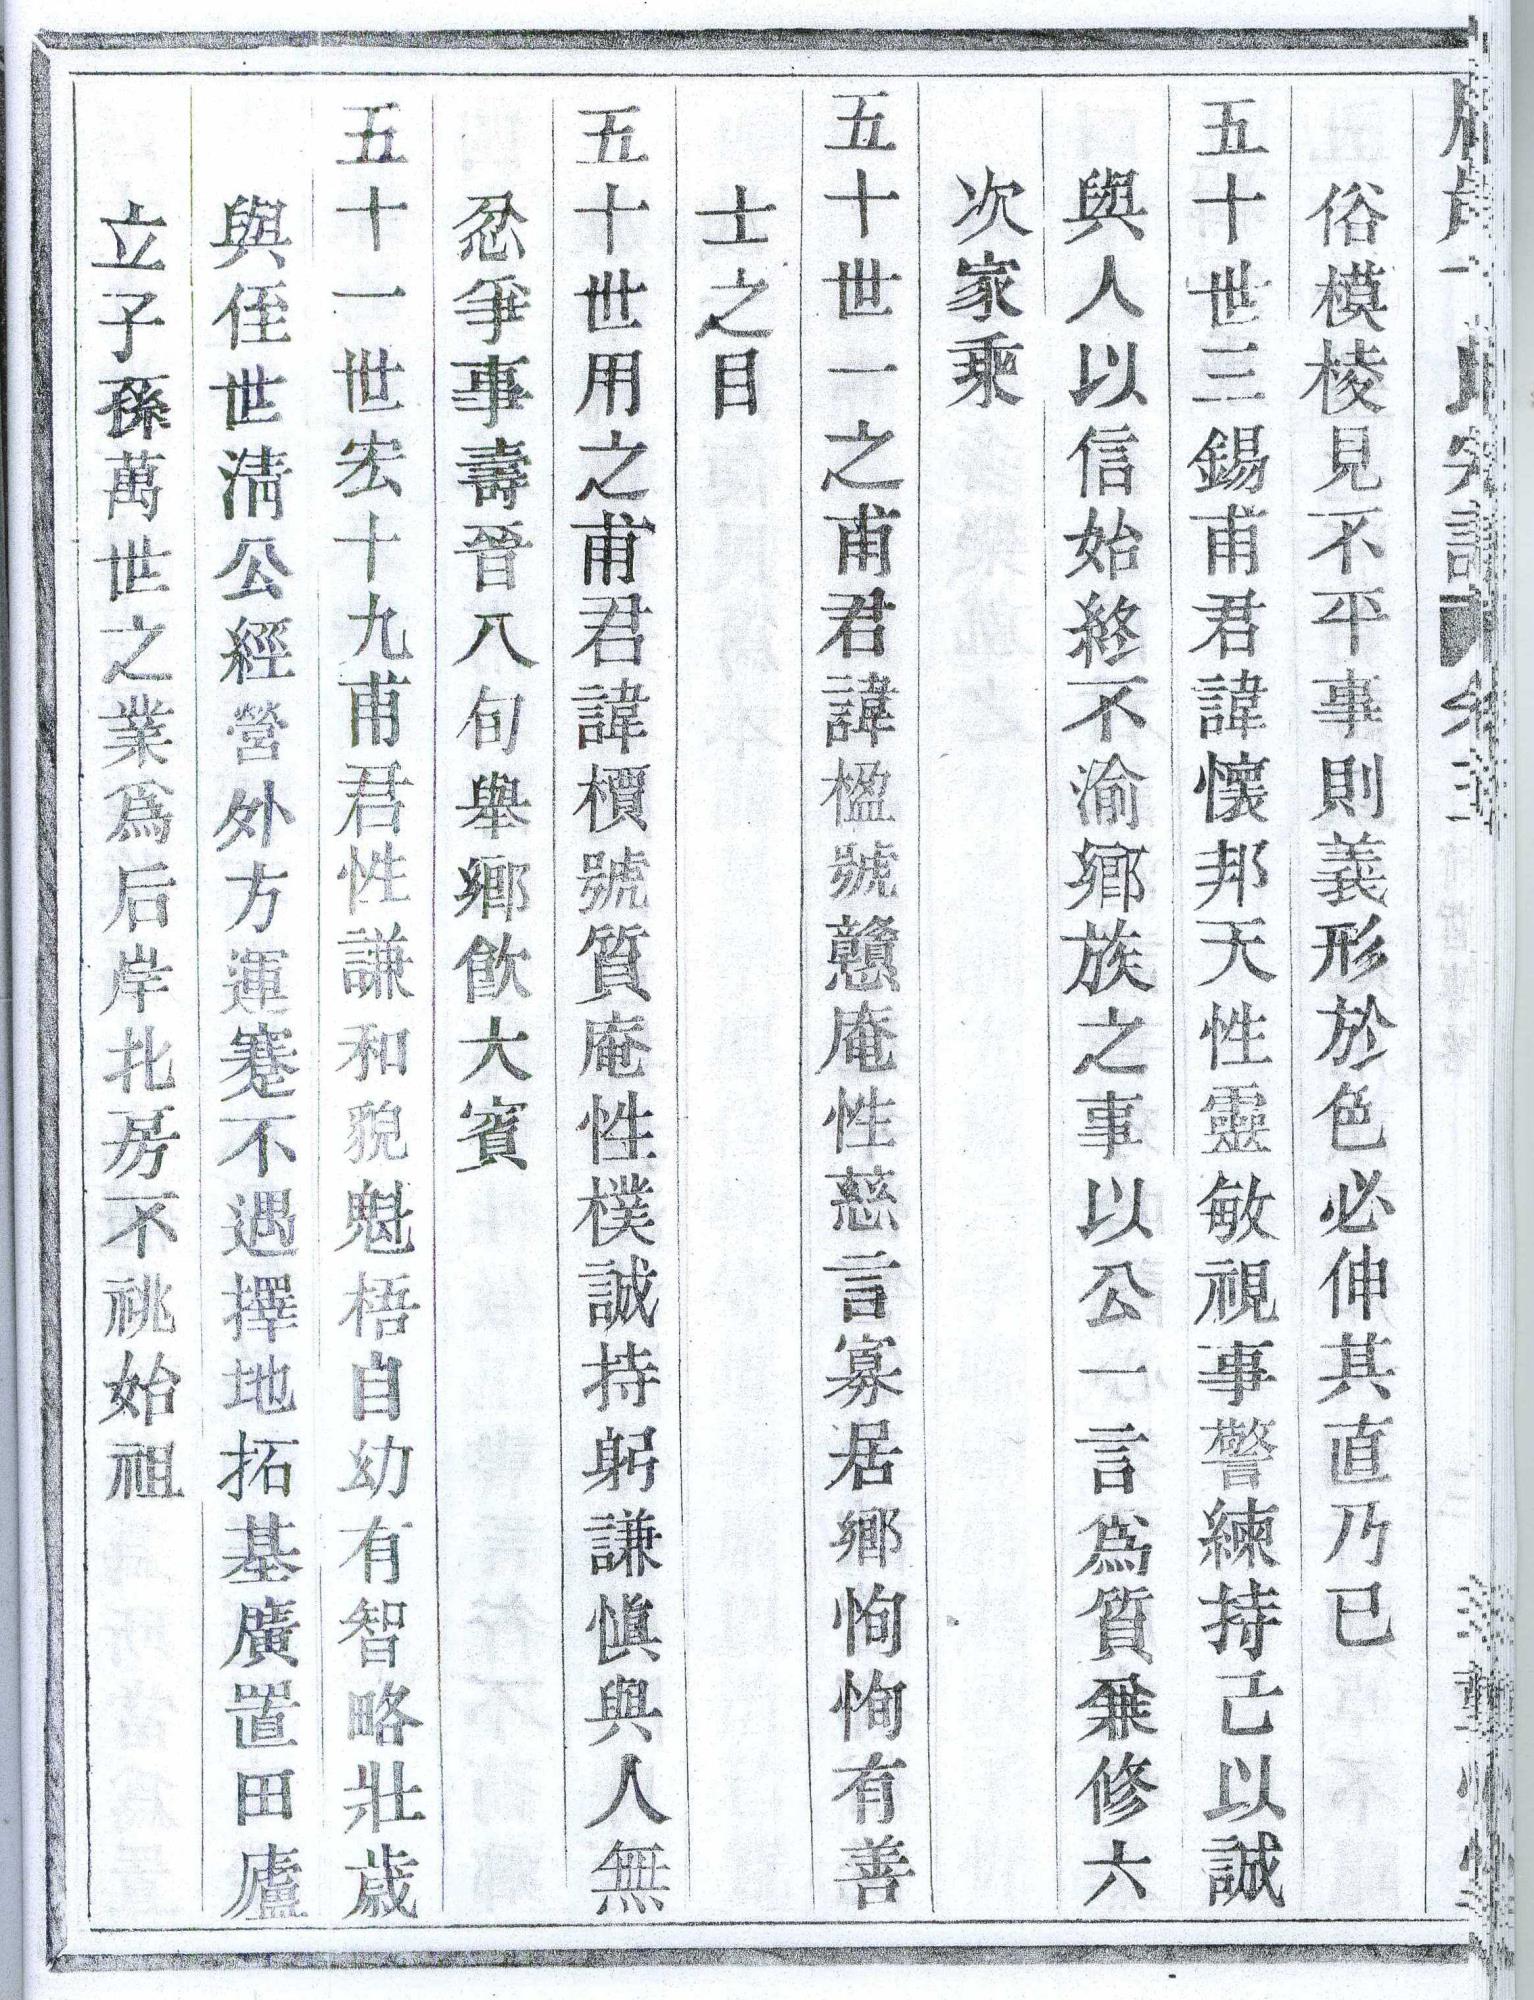 俗模棱見不平事則義形於色必伸其直乃已
五十世三錫甫君諱懷邦天性靈敏視事警練持己以誠
與人以信始終不渝鄉族之事以公一言爲質兼修六
次家乘
五十世一之甫君諱楹號戇庵性慈言寡居鄉恂恂有善
士之目
五十世用之甫君諱檟號質庵性樸誠持躬謙愼與人無
忿爭事壽晉八旬舉鄉飮大賓
五十一世宏十九甫君性謙和貌魁梧自幼有智略壯歲
與侄世淸公經營外方運蹇不遇擇地拓基廣置田廬
立子孫萬世之業爲后岸北房不祧始祖